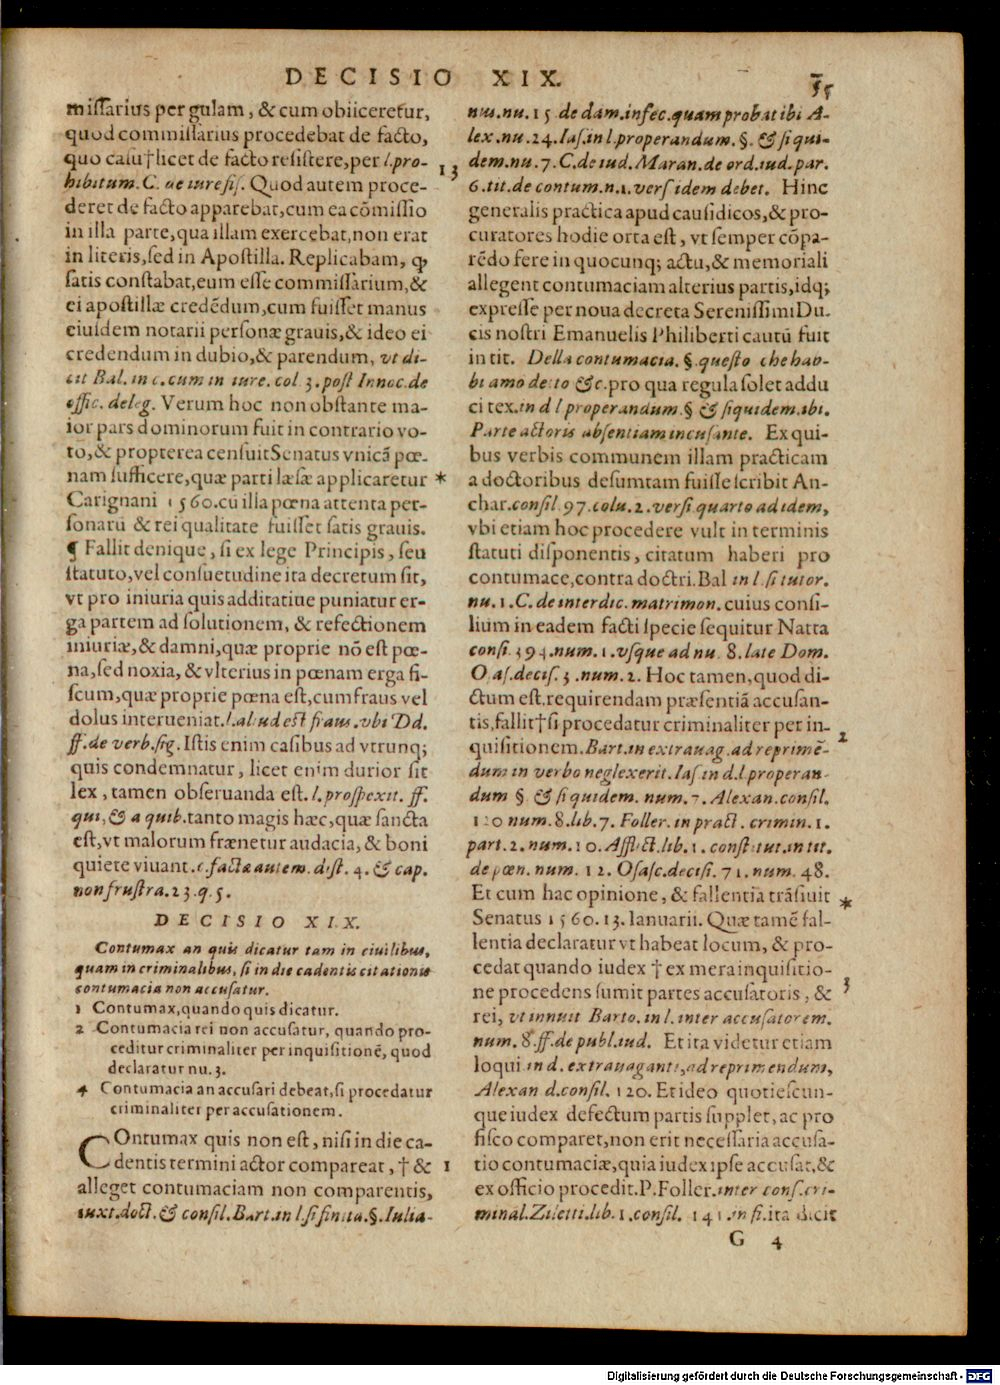 DECISIO XIX.
55
miſſarius per gulam, & cum obiiceretur,
quod commiſſarius procedebat de facto,
quo caſu † licet de facto reſiſtere, per l.pro-
13
hibitum. C. de iure fiſ. Quod autem proce-
deret de facto apparebat, cum ea cõmiſſio
in illa parte, qua illam exercebat, non erat
in literis, ſed in Apoſtilla. Replicabam, ꝙ
ſatis conſtabat, eum eſſe commiſſarium, &
ei apoſtillæ credẽdum, cum fuiſſet manus
eiuſdem notarii perſonæ grauis, & ideo ei
credendum in dubio, & parendum, vt di-
cit Bal. in c. cum in iure. col 3. poſt Innoc. de
offic. deleg. Verum hoc non obſtante ma-
ior pars dominorum fuit in contrario vo-
to, & propterea cenſuit Senatus vnicã pœ-
nam ſufficere, quæ parti læſæ applicaretur *
Carignani 1560. cũ illa pœna attenta per-
ſonarũ & rei qualitate fuiſſet ſatis grauis.
¶ Fallit denique, ſi ex lege Principis, ſeu
ſtatuto, vel conſuetudine ita decretum ſit,
vt pro iniuria quis additatiue puniatur er-
ga partem ad ſolutionem, & refectionem
iniuriæ, & damni, quæ proprie nõ eſt pœ-
na, ſed noxia, & vlterius in pœnam erga fi-
ſcum, quæ proprie pœna eſt, cum fraus vel
dolus interueniat. l. aliud eſt fraus. vbi Dd.
ff. de verb. ſig. Iſtis enim caſibus ad vtrunq;
quis condemnatur, licet enim durior ſit
lex, tamen obſeruanda eſt. l. proſpexit. ff.
qui, & a quib. tanto magis hæc, quæ ſancta
eſt, vt malorum frænetur audacia, & boni
quiete viuant. c. factæ autem. diſt. 4. & cap.
non fruſtra. 23. q. 5.
DECISIO XIX.
Contumax an quis dicatur tam in ciuilibus,
quam in criminalibus, ſi in die cadentis citationis
contumacia non accuſatur.
1 Contumax, quando quis dicatur.
2 Contumacia rei non accuſatur, quando pro-
ceditur criminaliter per inquiſitionẽ, quod
declaratur nu. 3.
4 Contumacia an accuſari debeat, ſi procedatur
criminaliter per accuſationem.
COntumax quis non eſt, niſi in die ca-
dentis termini actor compareat, † & 1
alleget contumaciam non comparentis,
iuxt. doct. & conſil. Bart. in l. ſi finita. §. Iulia-
nus. nu. 15 de dam. infec. quam probat ibi A-
lex. nu. 24. Iaſ. in l. properandum. §. & ſi qui-
dem. nu. 7. C. de iud. Maran. de ord. iud. par.
6. tit. de contum. n. 1. verſ idem debet. Hinc
generalis practica apud cauſidicos, & pro-
curatores hodie orta eſt, vt ſemper cõpa-
rẽdo fere in quocunq; actu, & memoriali
allegent contumaciam alterius partis, idq;
expreſſe per noua decreta Sereniſſimi Du-
cis noſtri Emanuelis Philiberti cautũ fuit
in tit. Della contumacia. §. queſto che hab-
bi amo detto &c. pro qua regula ſolet addu
ci tex. in d l properandum § & ſiquidem. ibi.
Parte actoris abſentiam incuſante. Ex qui-
bus verbis communem illam practicam
a doctoribus deſumtam fuiſſe ſcribit An-
char. conſil. 97. colu. 2. verſi quarto ad idem,
vbi etiam hoc procedere vult in terminis
ſtatuti diſponentis, citatum haberi pro
contumace, contra doctri. Bal in l. ſi tutor.
nu. 1. C. de interdic. matrimon. cuius conſi-
lium in eadem facti ſpecie ſequitur Natta
conſi. 394. num. 1. vſque ad nu. 8. late Dom.
Oſaſ. deciſ. 3. num. 2. Hoc tamen, quod di-
ctum eſt, requirendam præſentiã accuſan-
tis, fallit † ſi procedatur criminaliter per in-
2
quiſitionem. Bart. in extrauag. ad reprimẽ-
dum in verbo neglexerit. Iaſ. in d. l properan-
dum § & ſi quidem. num. 7. Alexan. conſil.
120 num. 8. lib. 7. Foller. in pract. crimin. 1.
part. 2. num. 10. Afflict. lib. 1. conſtitut. in tit.
de pœn. num. 12. Oſaſc. deciſi. 71. num. 48.
Et cum hac opinione, & fallentia trãſiuit *
Senatus 1560. 13. Ianuarii. Quæ tamẽ fal-
lentia declaratur vt habeat locum, & pro-
cedat quando iudex † ex mera inquiſitio-
3
ne procedens ſumit partes accuſatoris, &
rei, vt innuit Barto. in l. inter accuſatorem.
num. 8. ff. de publ. iud. Et ita videtur etiam
loqui in d. extrauaganti, ad reprimendum,
Alexan d. conſil. 120. Et ideo quotieſcun-
que iudex defectum partis ſupplet, ac pro
fiſco comparet, non erit neceſſaria accuſa-
tio contumaciæ, quia iudex ipſe accuſat, &
ex officio procedit. P. Foller. inter conſ. cri-
minal. Ziletti. lib. 1. conſil. 141. in fi. ita dicit
G 4
Digitalisierung gefördert durch die Deutsche Forschungsgemeinschaft - DFG